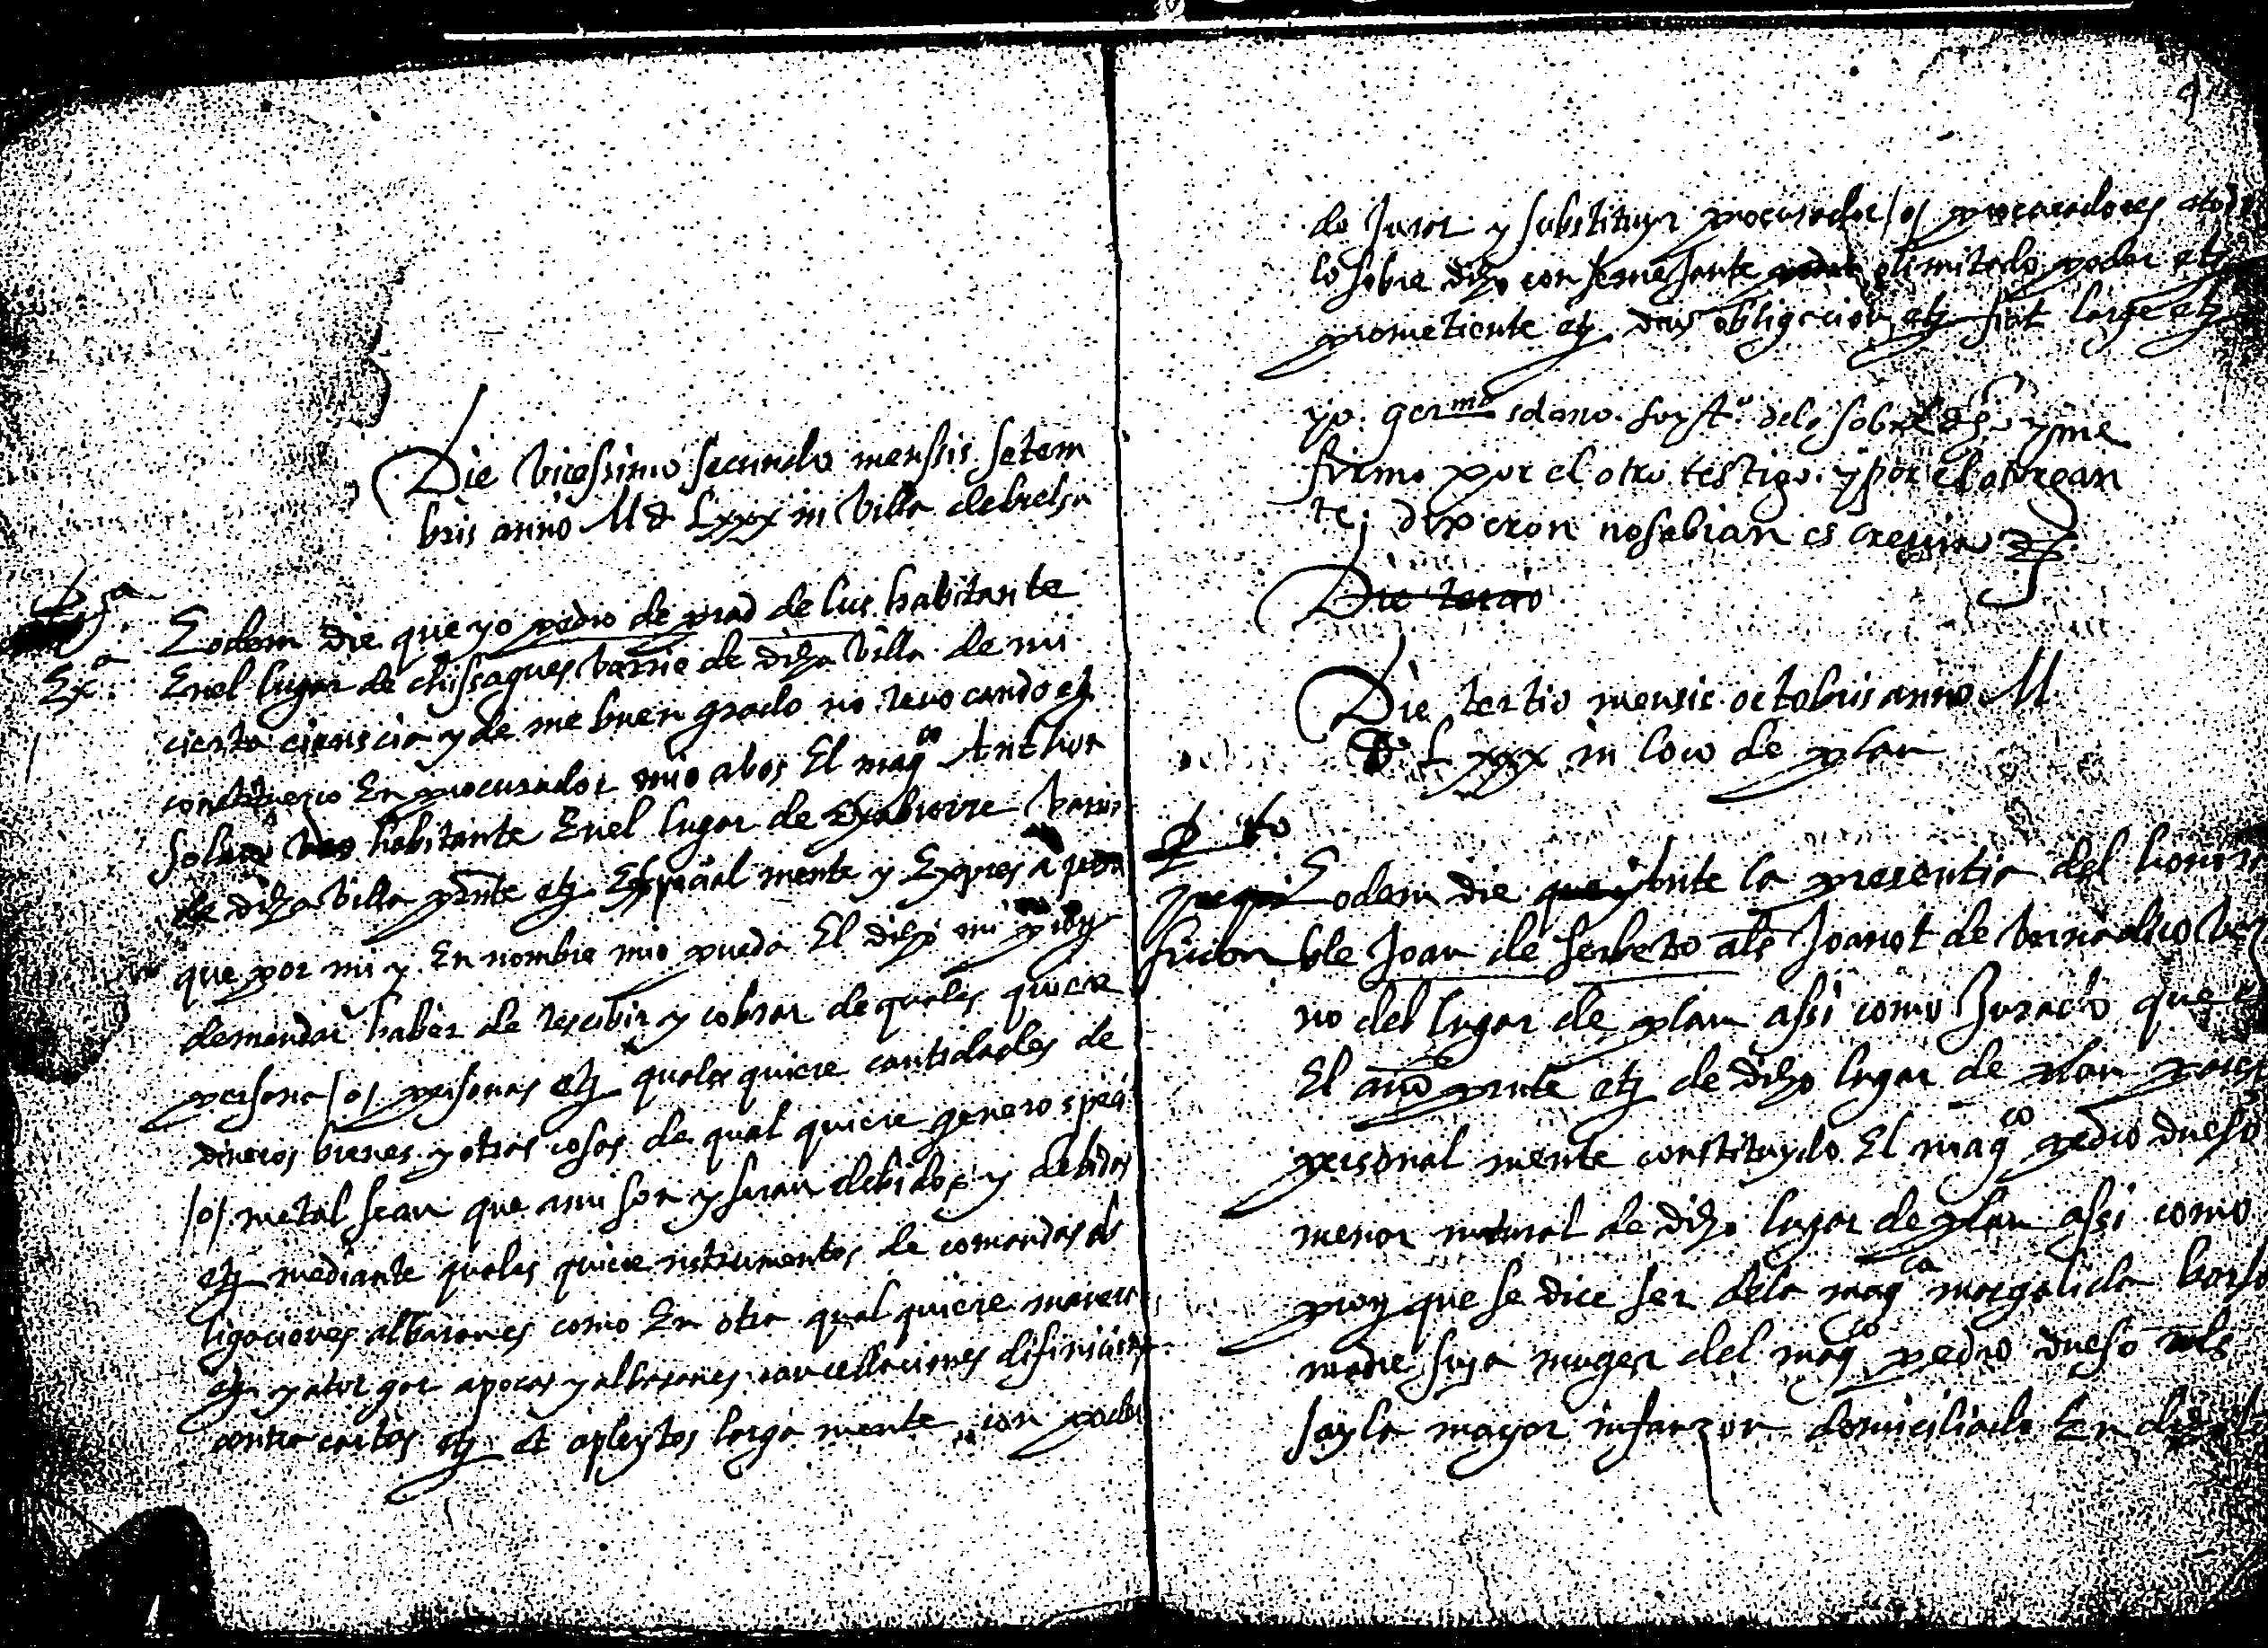 Die vicessimo secundo menssis setem
bris anno M d Lxxx in villa de bielsa
Eodem die que yo pedro de prad de lus habitante
Exa. Enel lugar de chissagues barrio de dicha villa de mi
cierta ciencia y de me buen grado no revocando etz
constituezco En procurador mio a bos El magco Anthon
habitante Enel lugar de barrio
de dicha villa pnte etz Especial mente y Expresa pera
que por mi y En nombre mio pueda El dicho mi procr
demandar haber de rescibir y cobrar de quales quiere
persona /o/ personas etz quales quiere cantidades de
dineros bienes y otras cosas de qual quiere genero speci
/o/ metal sean que a mi son y seran debidos y debidas
etz mediante quales quiere instrumentos de comandas ob
ligaciones albaranes como En otra qual quiere manera
etz y atorgar apocas y albaranes cancellaciones difiniciones
contra cartas etz et a pleytos larga mente con poder
9
de Jurar y substituyr procurador /o/ procuradores
lo sobre dicho con semejante o limitado poder etz
prometiente etz dius obligacion etz fiat large etz
yo germo solano soy to delo sobredho y me
firmo por el otro testigo y por el atorgan
te dixeron no sabian escrevir
Die tercio
Die tertio mensis octobris anno M
D Lxxx in loco de plan
Eodem die que ante la presentia del honora
ble Joan de serbeto als Joanot de bernad vezi
no del lugar de plan assi como Jurado que es
El año pnte etz de dicho lugar de plan
personal mente constituydo El magco pedro dueso
menor natural de dicho lugar de plan assi como
procr que se dice ser dela magca margalida
madre suya muger del magco pedro dueso als
sayla mayor infanzon domiciliado En